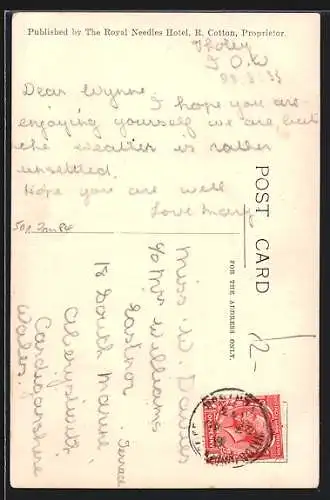 Published by The Royal Needles Hotel, R. Cotton, Proprietor
I O W
Dear Wynne.
I hope you are
enjoying yourself we are, but
the weather is rather
unsettled.
Hope you are well
Love Mary
POST CARD
FOR THE ADDRESS ONLY.
Miss. W. Davies
c/o Mrs Williams
Eastnor
18 South Marine
Terrace
Aberystwith
Cardiganshire
Wales.